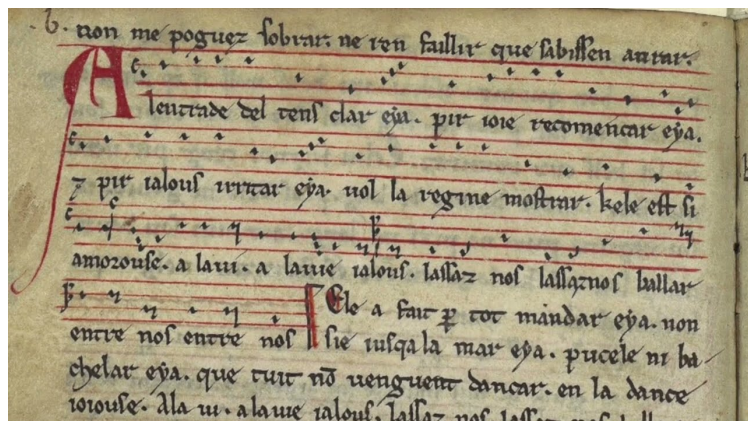 non me poguez sobrar. ne ren faillir que sabissen aurar.
A lentrade del tens clar eya. pir ioie recomencar eya.
⁊ pir ialous irritar eya. uol la regine mostrar. kele est si
amorouse. a laui. a lauie ialous. lassaz nos lassaznos ballar
entre nos entre nos Ele a fait p̱ tot mandar eya. non
sie iusqala mar eya. pucele ni ba-
chelar eya. que tuit nō uenguent dancar. en la dance
ioiouse. Ala ui. alauie ialous. lassaz nos